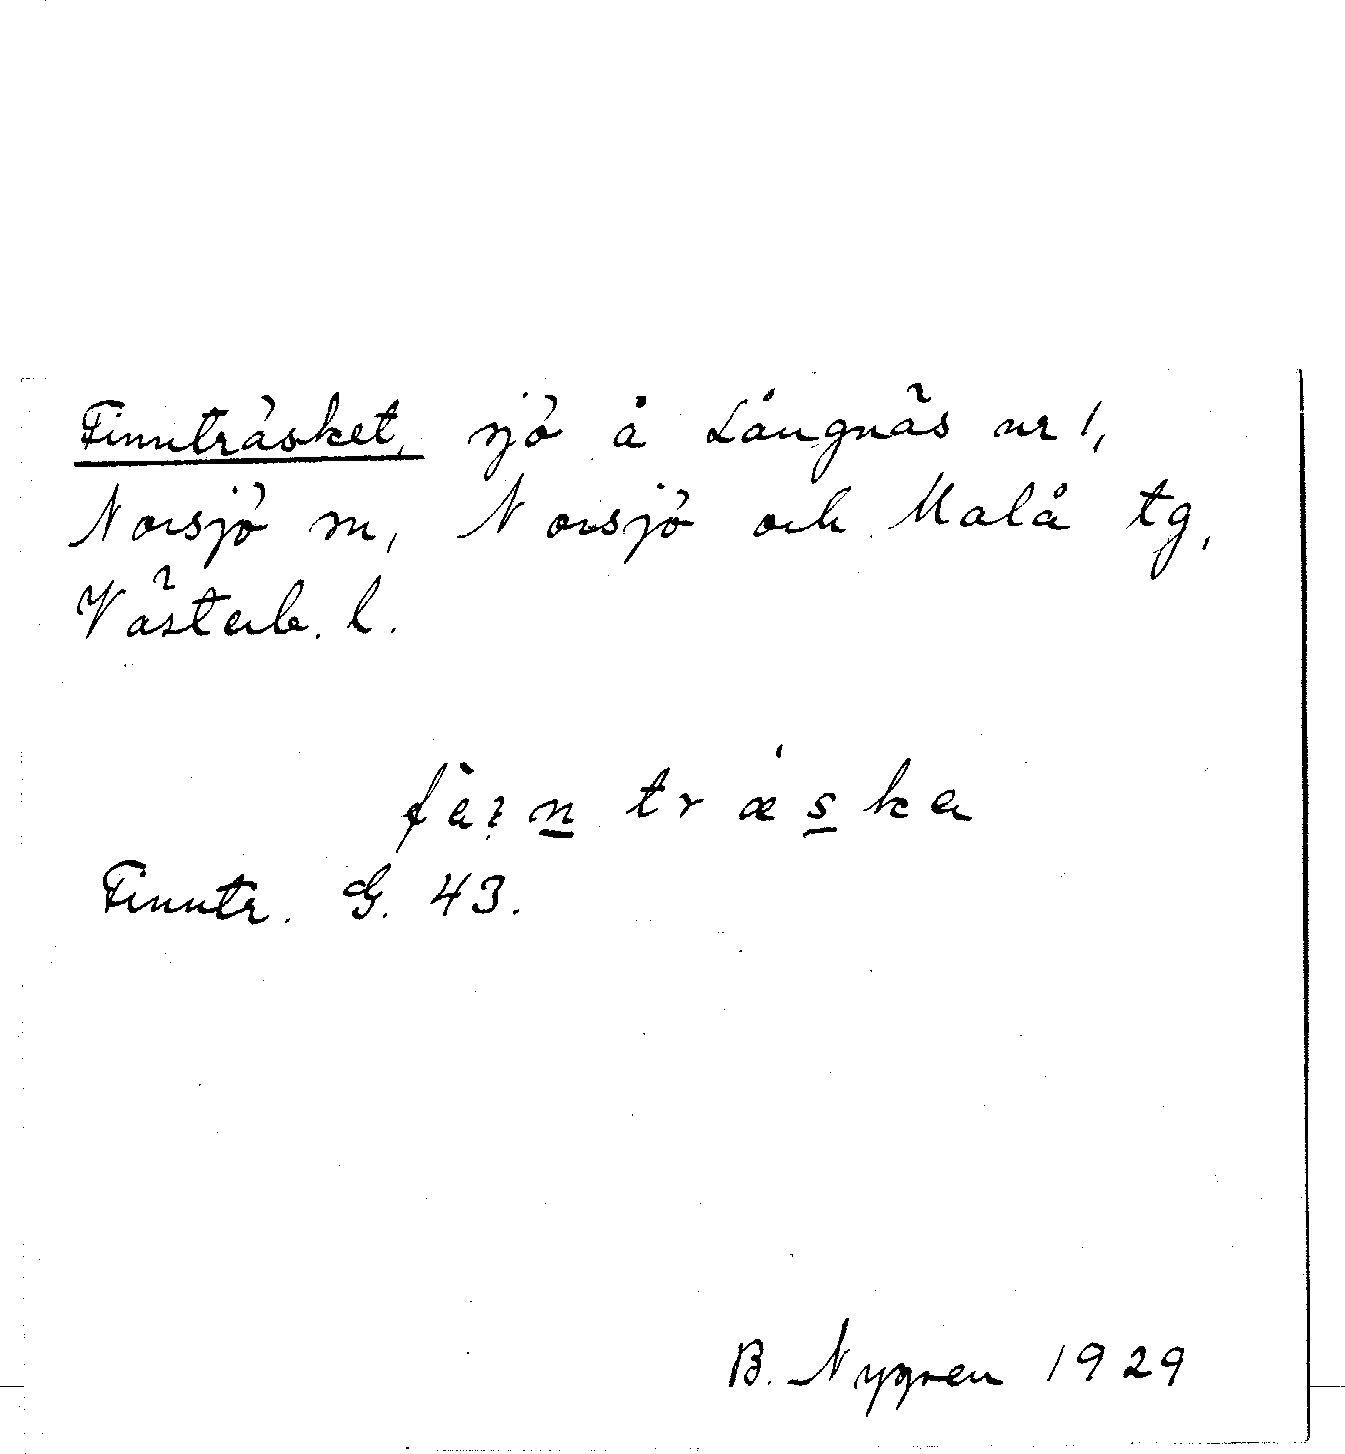 Finnträsket, sjö å Långnäs nr 1,
Norsjö sn, Norsjö och Malå tg,
Västerb. l.
Finntr. G. 43.
B. Nygren 1929